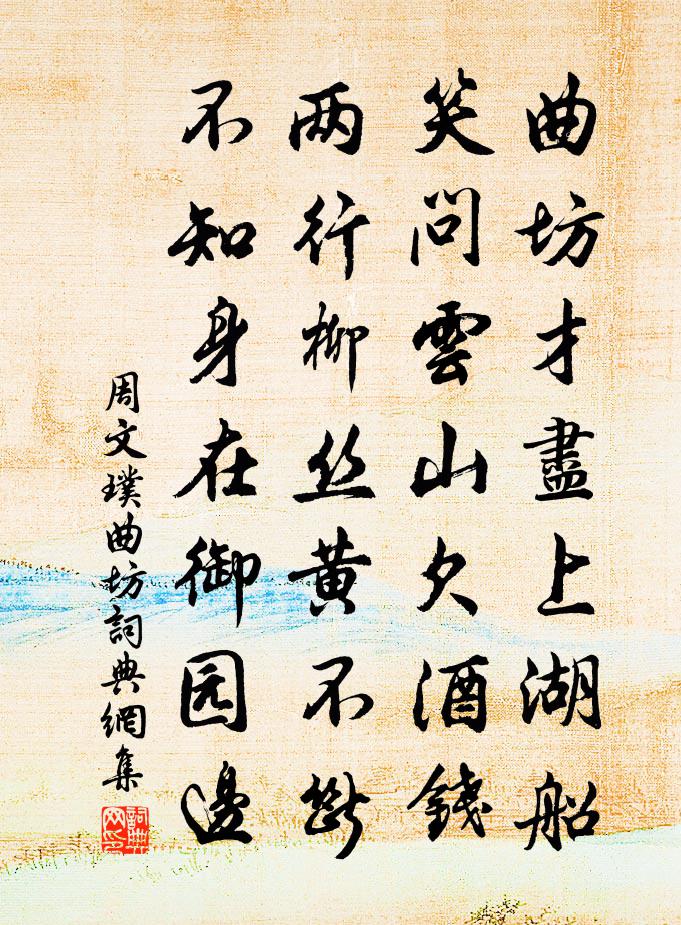 曲坊才盡上湖船
笑問雲山欠酒錢
两行柳丝黄不斷
不知身在御园邊
周文璞曲坊詞典網集
詞典网印